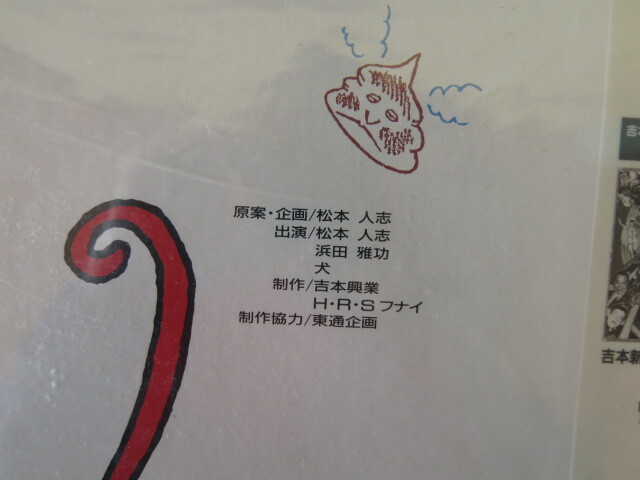 原案・企画/松本 人志
出演/松本 人志
浜田 雅功
犬
制作/吉本興業
H・R・Sフナイ
制作協力/東通企画
吉本新